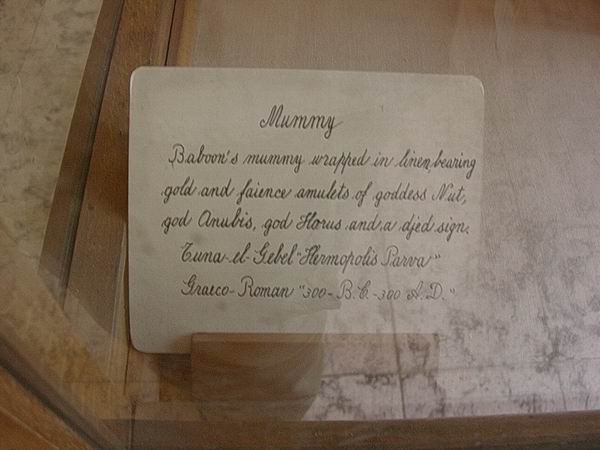 Mummy
Baboon's mummy wrapped in linen, bearing
gold and faience amulets of goddess Nut,
god Anubis, god Horus and a djed sign.
Tuna-el-Gebel "Hermopolis Parva"
Graeco-Roman "300-B.C-300 A.D."